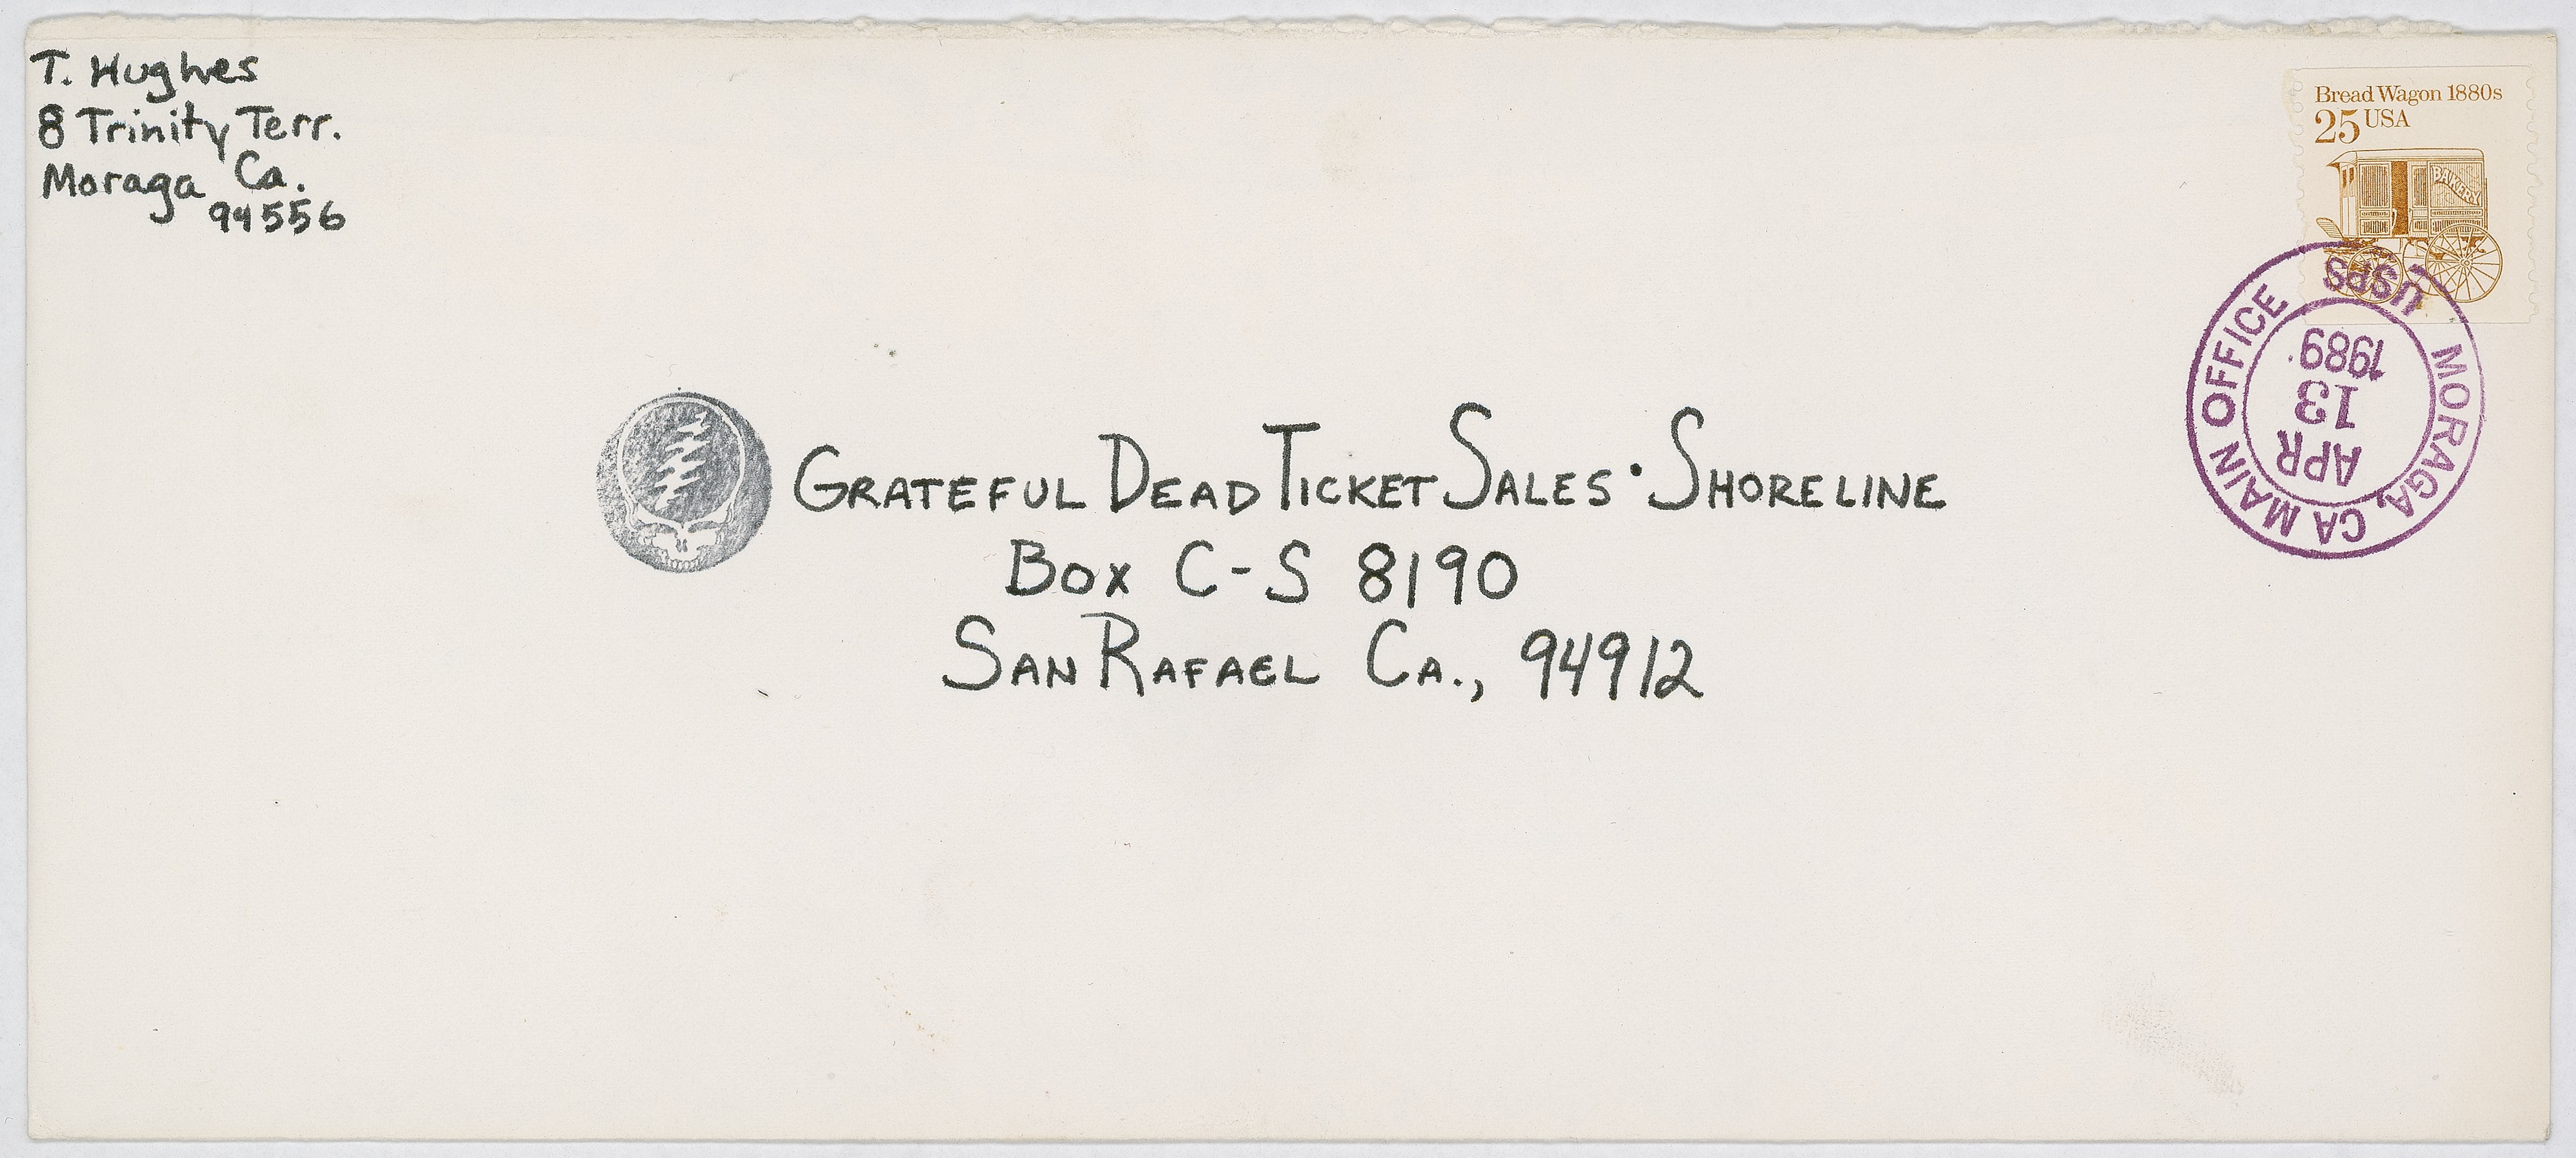 T. Hughes
8 Trinity Terr.
Moraga Ca.
94556
Bread Wagon 1880s
25 USA
BAKERY
MORAGA, CA MAIN OFFICE
USPS
APR
13
1989
GRATEFUL DEAD TICKET SALES • SHORELINE
BOX C-S 8190
SAN RAFAEL CA., 94912